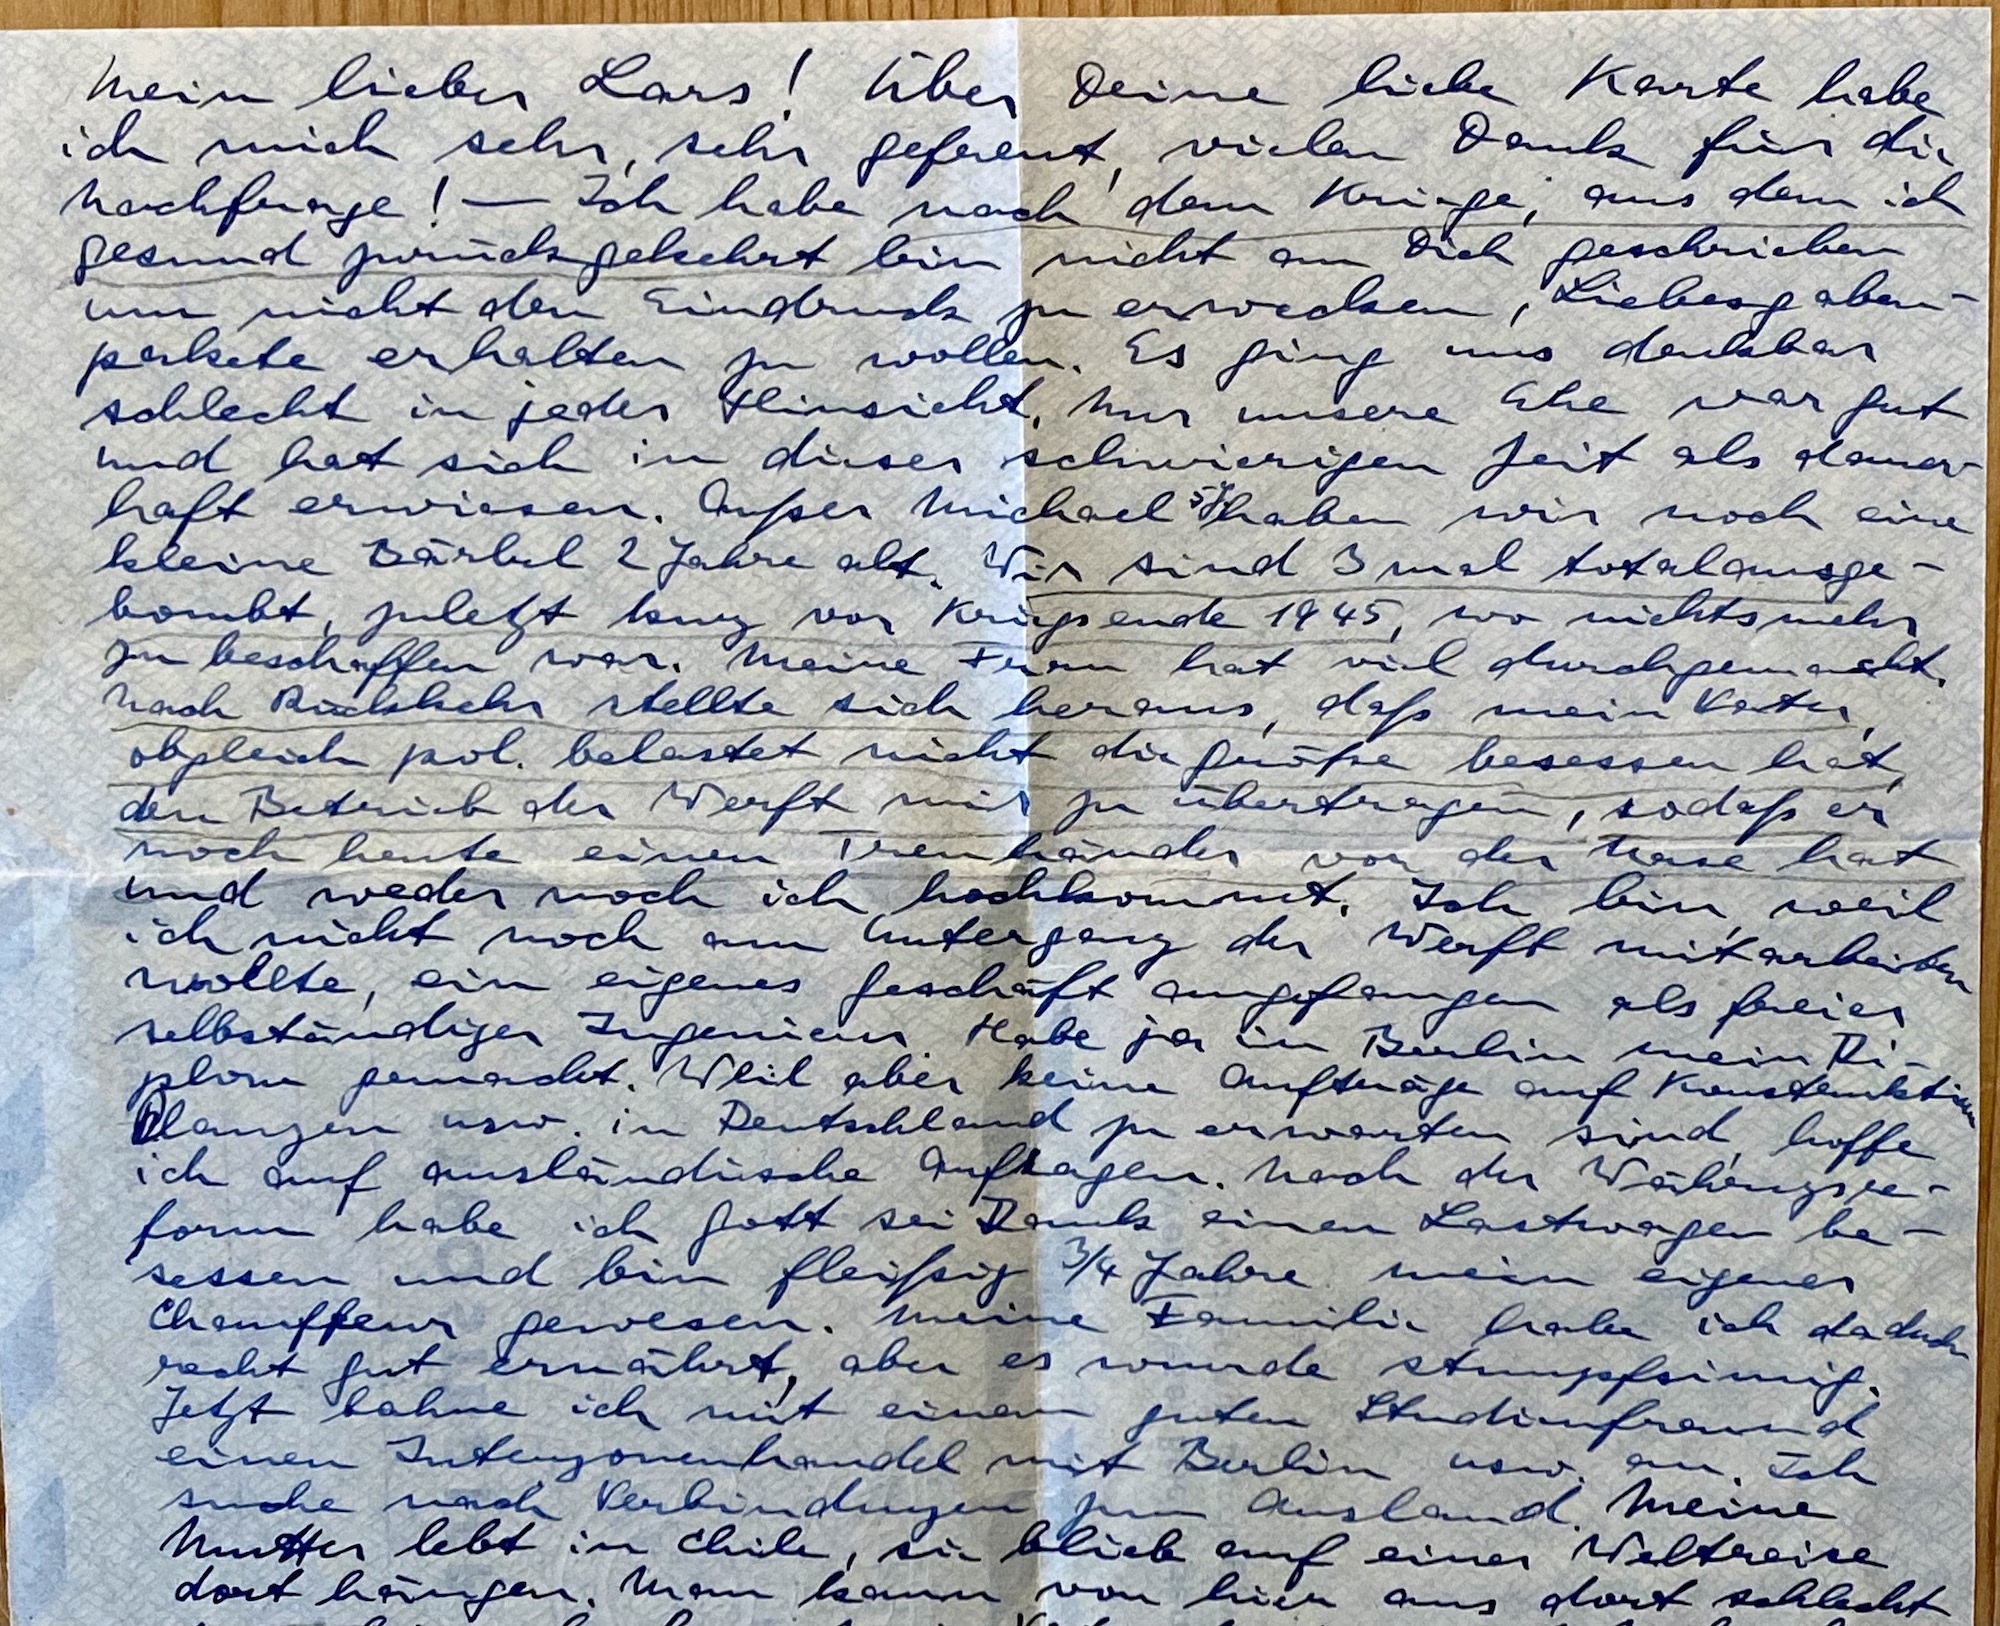 Mein lieber Lars! Über Deine liebe Karte habe
ich mich sehr, sehr gefreut, vielen Dank für die
Nachfrage! — Ich habe nach dem Kriege, aus dem ich
gesund zurückgekehrt bin nicht an Dich geschrieben
um nicht den Eindruck zu erwecken, Liebesgaben-
pakete erhalten zu wollen. Es ging uns denkbar
schlecht in jeder Hinsicht, nur unsere Ehe war gut
und hat sich in dieser schwierigen Zeit als dauer-
haft erwiesen. Außer Michael 5J haben wir noch eine
kleine Bärbel 2 Jahre alt. Wir sind 3 mal totalausge-
bombt, zuletzt kurz vor Kriegsende 1945, wo nichts mehr
zu beschaffen war. Meine Frau hat viel durchgemacht.
Nach Rückkehr stellte sich heraus, daß mein Vater,
obgleich pol. belastet nicht die Größe besessen hat,
den Betrieb der Werft mir zu übertragen, sodaß er
noch heute einen Treuhänder vor der Nase hat
und weder noch ich hochkommt. Ich bin, weil
ich nicht noch am Untergang der Werft mitarbeiten
wollte, ein eigenes Geschäft angefangen als freier
selbständiger Ingenieur. Habe ja in Berlin mein Di-
plom gemacht. Weil aber keine Aufträge auf Konstruktion
Planzen usw. in Deutschland zu erwarten sind, hoffe
ich auf ausländische Anfragen. Nach der Währungsre-
form habe ich Gott sei Dank einen Lastwagen be-
sessen und bin fleißig 3/4 Jahre mein eigener
Chauffeur gewesen. Meine Familie habe ich dadurch
recht gut ernährt, aber es wurde stumpfsinnig.
Jetzt bahne ich mit einem guten Studienfreund
einen Interzonenhandel mit Berlin usw. an. Ich
suche nach Verbindungen zum Ausland. Meine
Mutter lebt in Chile, sie blieb auf einer Weltreise
dort hängen. Man kann von hier aus dort schlecht